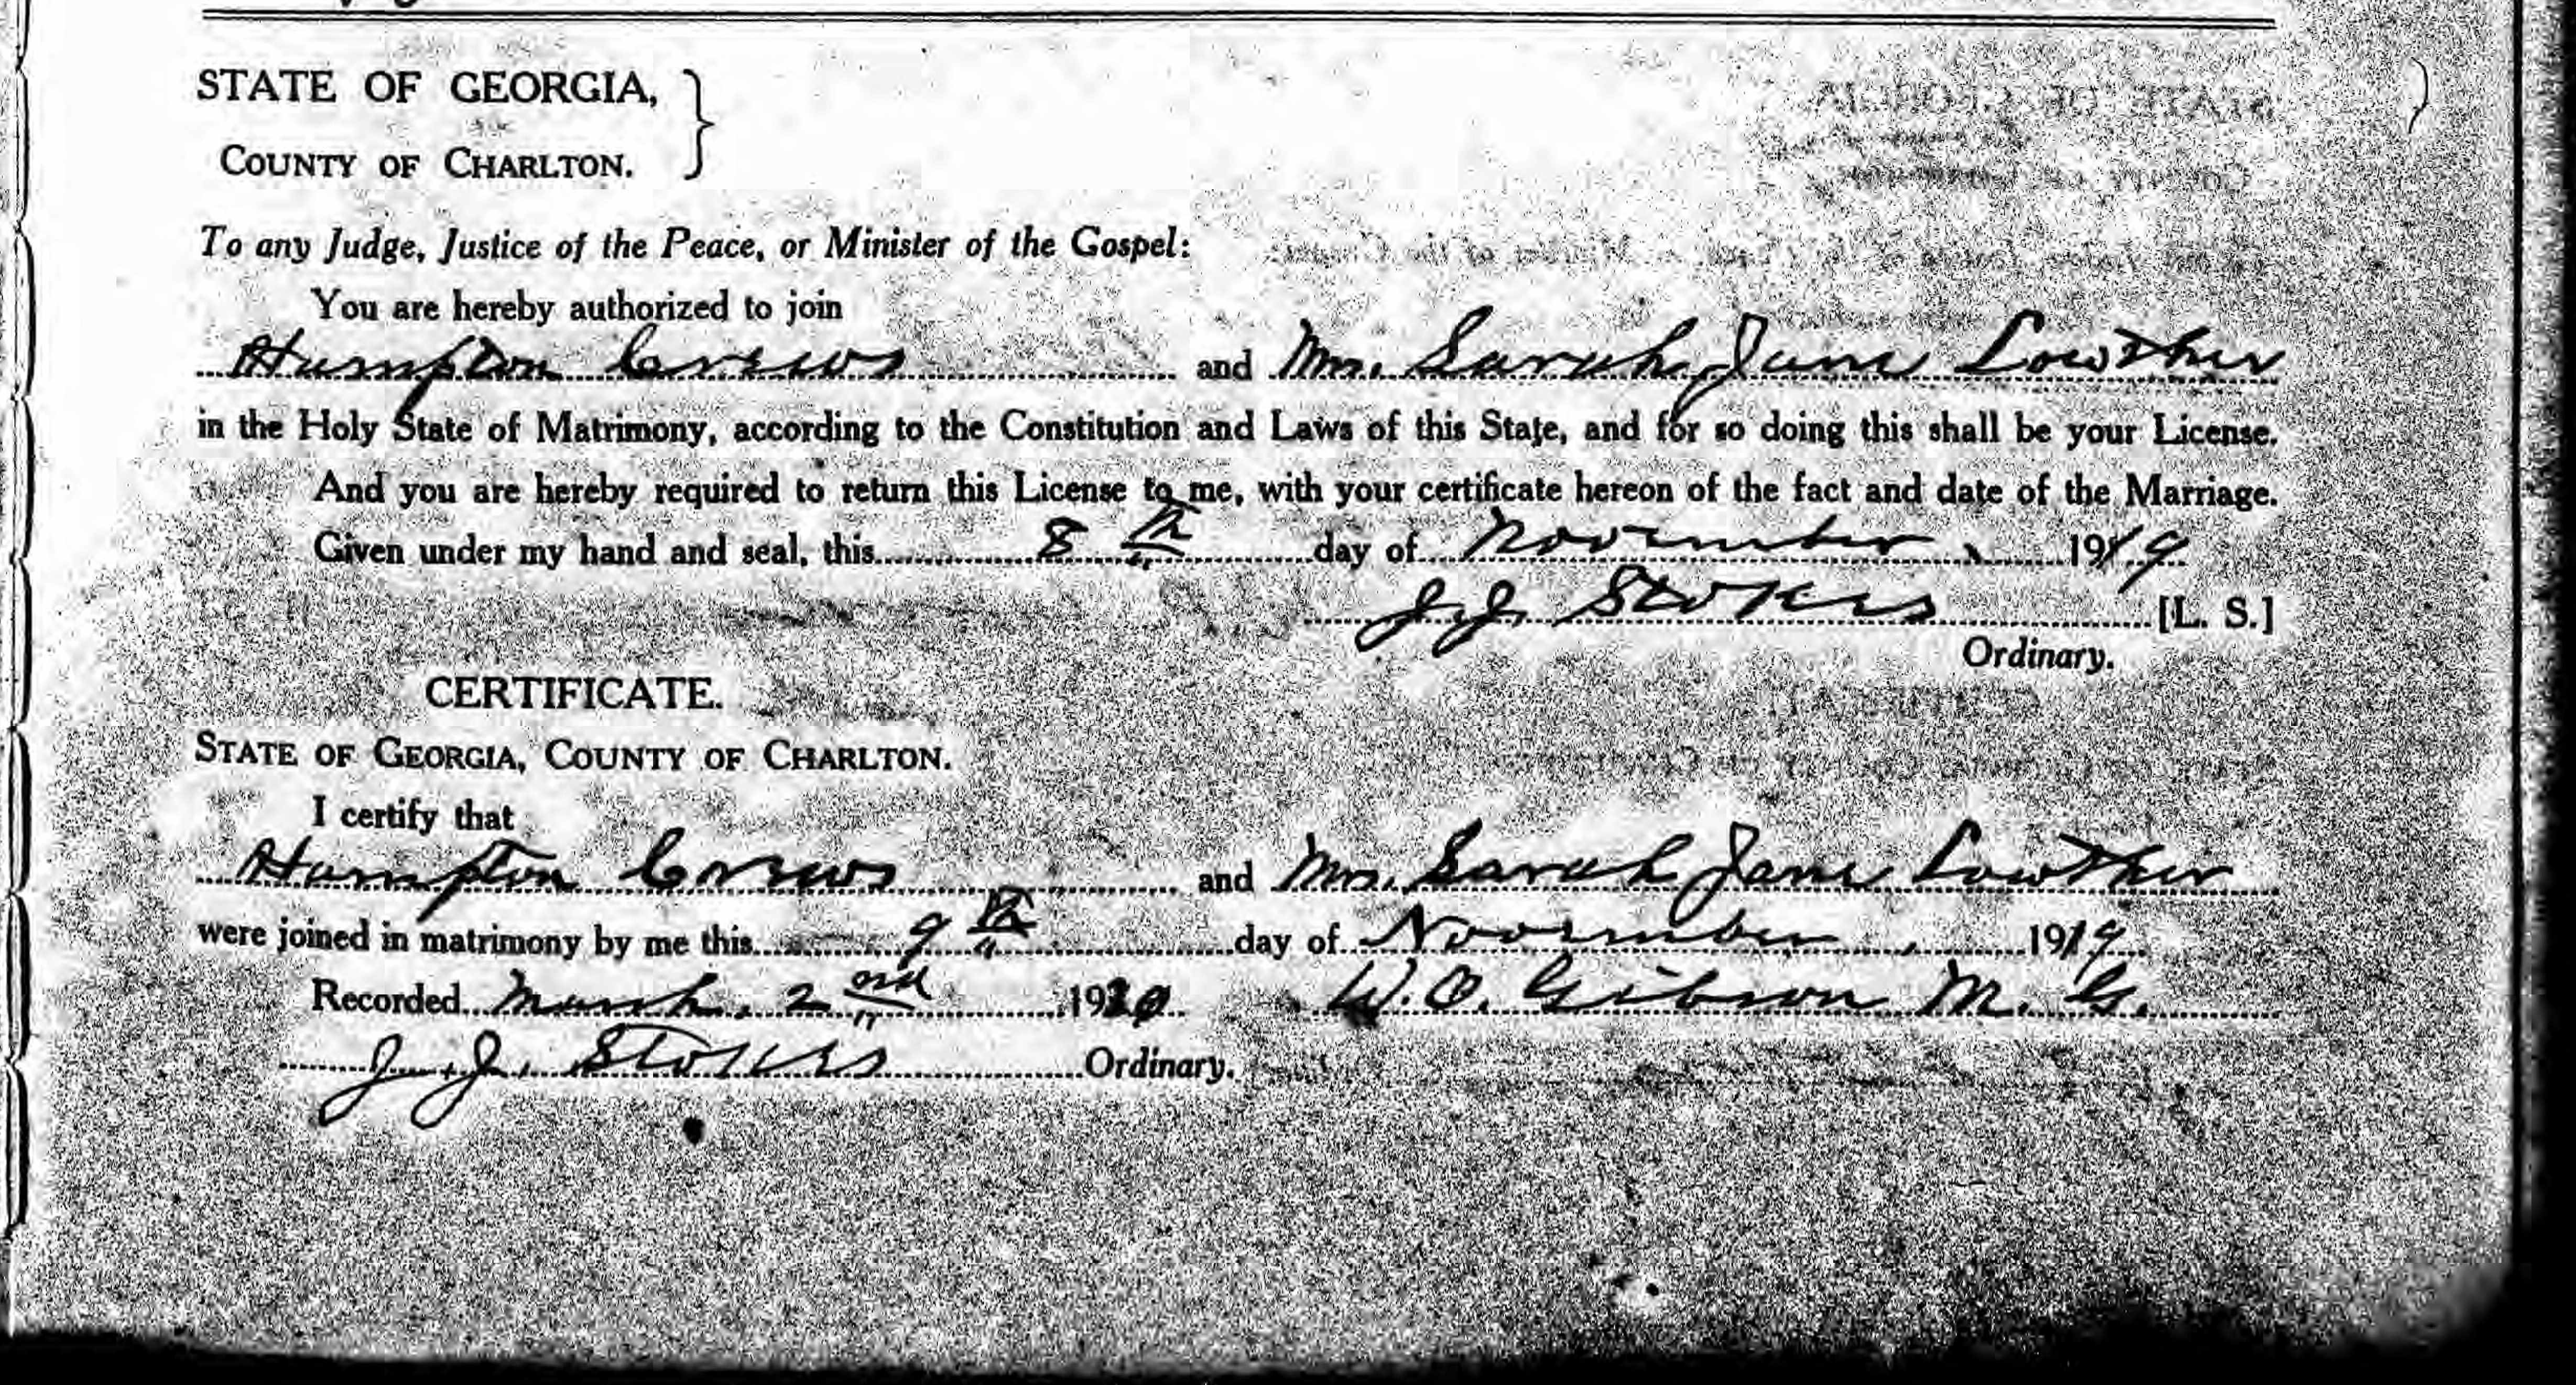 STATE OF GEORGIA,
COUNTY OF CHARLTON.
To any Judge, Justice of the Peace, or Minister of the Gospel:
You are hereby authorized to join
Hampton Crews and Mrs. Sarah Jane Lowther
in the Holy State of Matrimony, according to the Constitution and Laws of this State, and for so doing this shall be your License.
And you are hereby required to return this License to me, with your certificate hereon of the fact and date of the Marriage.
Given under my hand and seal, this 8th day of November, 1919
J. J. Stokes [L. S.]
Ordinary.
CERTIFICATE.
STATE OF GEORGIA, COUNTY OF CHARLTON.
I certify that
Hampton Crews and Mrs. Sarah Jane Lowther
were joined in matrimony by me this 9th day of November, 1919
Recorded March, 2nd 1920 W. O. Gibson M. G.
J. J. Stokes Ordinary.